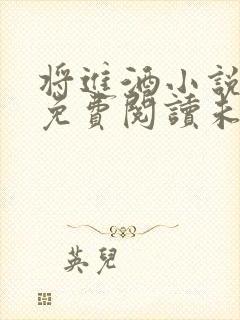 將進酒小說
免費閱讀未
英兒